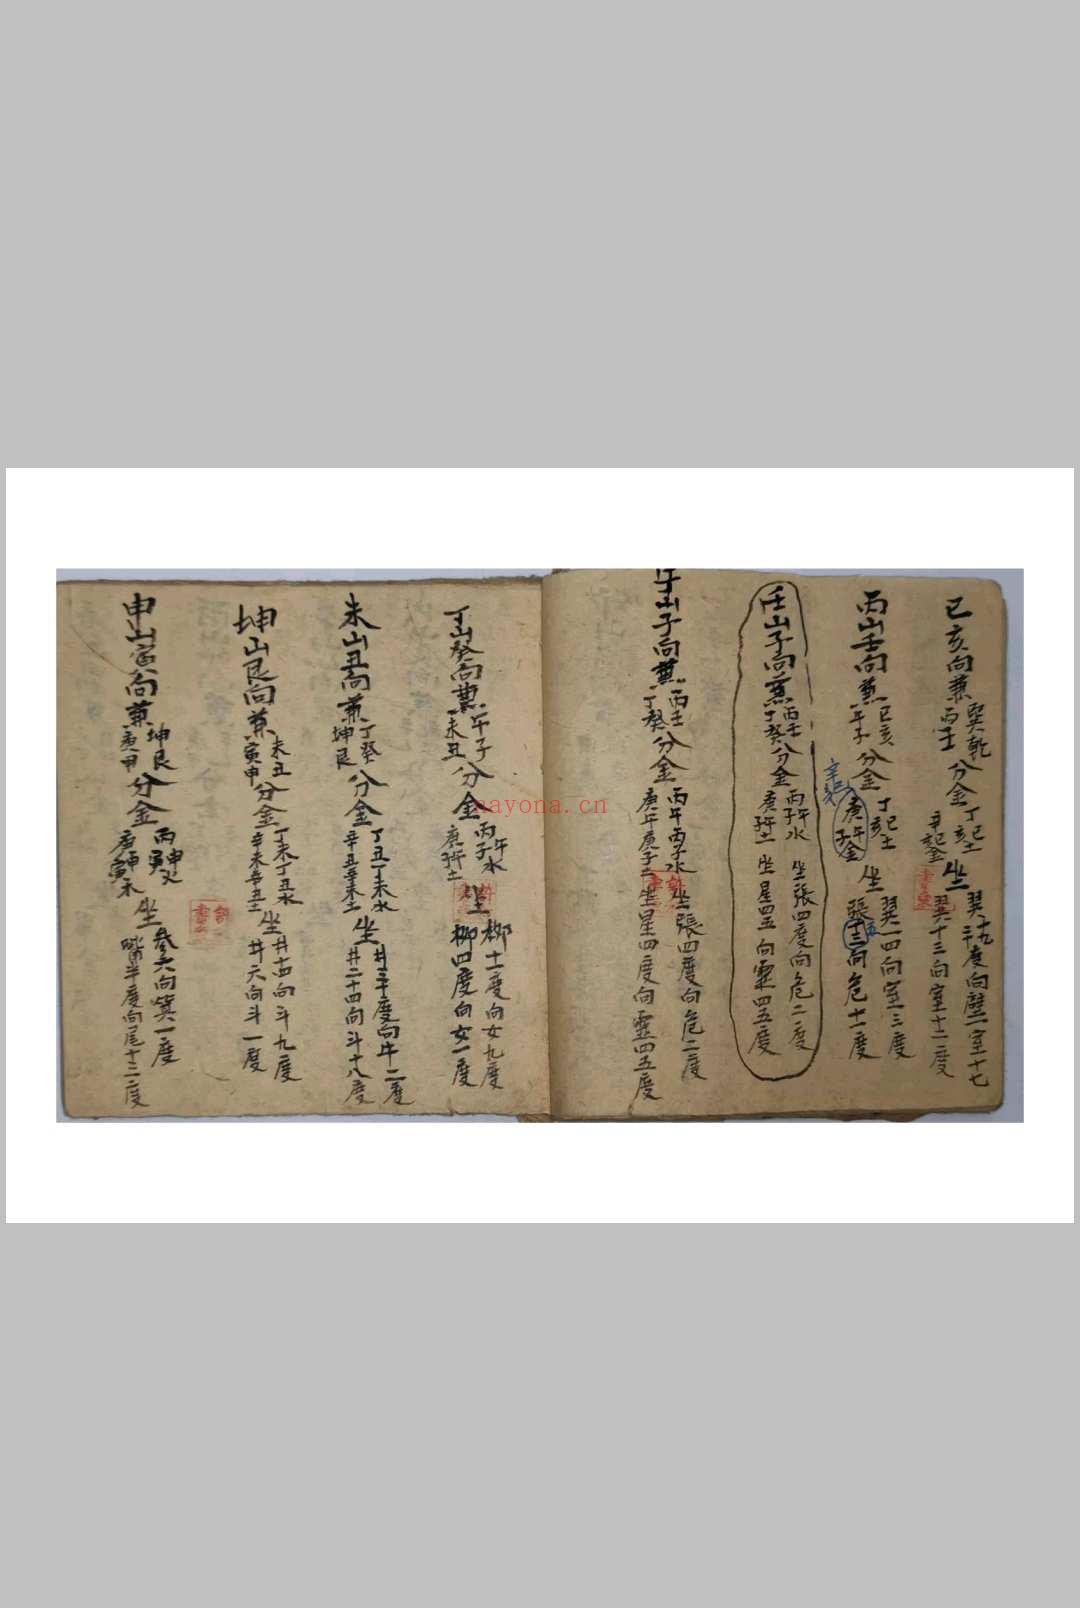 巳亥向兼巽乾丙壬分金丁巳丁亥土辛巳金坐翼十九度向壁一室十七翼十三向室十二度
丙山壬向兼巳亥午子分金丁巳丁亥土庚午庚子金坐翼一四向室三度張十三向危十一度
壬山子向兼丙壬丁癸分金丙午丙子水庚午庚子土坐張四度向危二度坐星四五向虛四五度
午山子向兼丙壬丁癸分金丙午丙子水庚午庚子土坐張四度向危二度坐星四度向虛四五度
丁山癸向兼午子未丑分金丙午丙子水庚午庚子土坐柳十一度向女九度柳四度向女一度
未山丑向兼丁癸坤艮分金丁丑丁未水辛丑辛未土坐井三十度向牛二度井二十四向斗十八度
坤山艮向兼未丑寅申分金丁未丁丑水辛未辛丑土坐井十四向斗九度井六向斗一度
申山寅向兼坤艮庚甲分金丙申丙寅火庚申庚寅木坐參六向箕一度嘴半度向尾十三度
nayona.cn